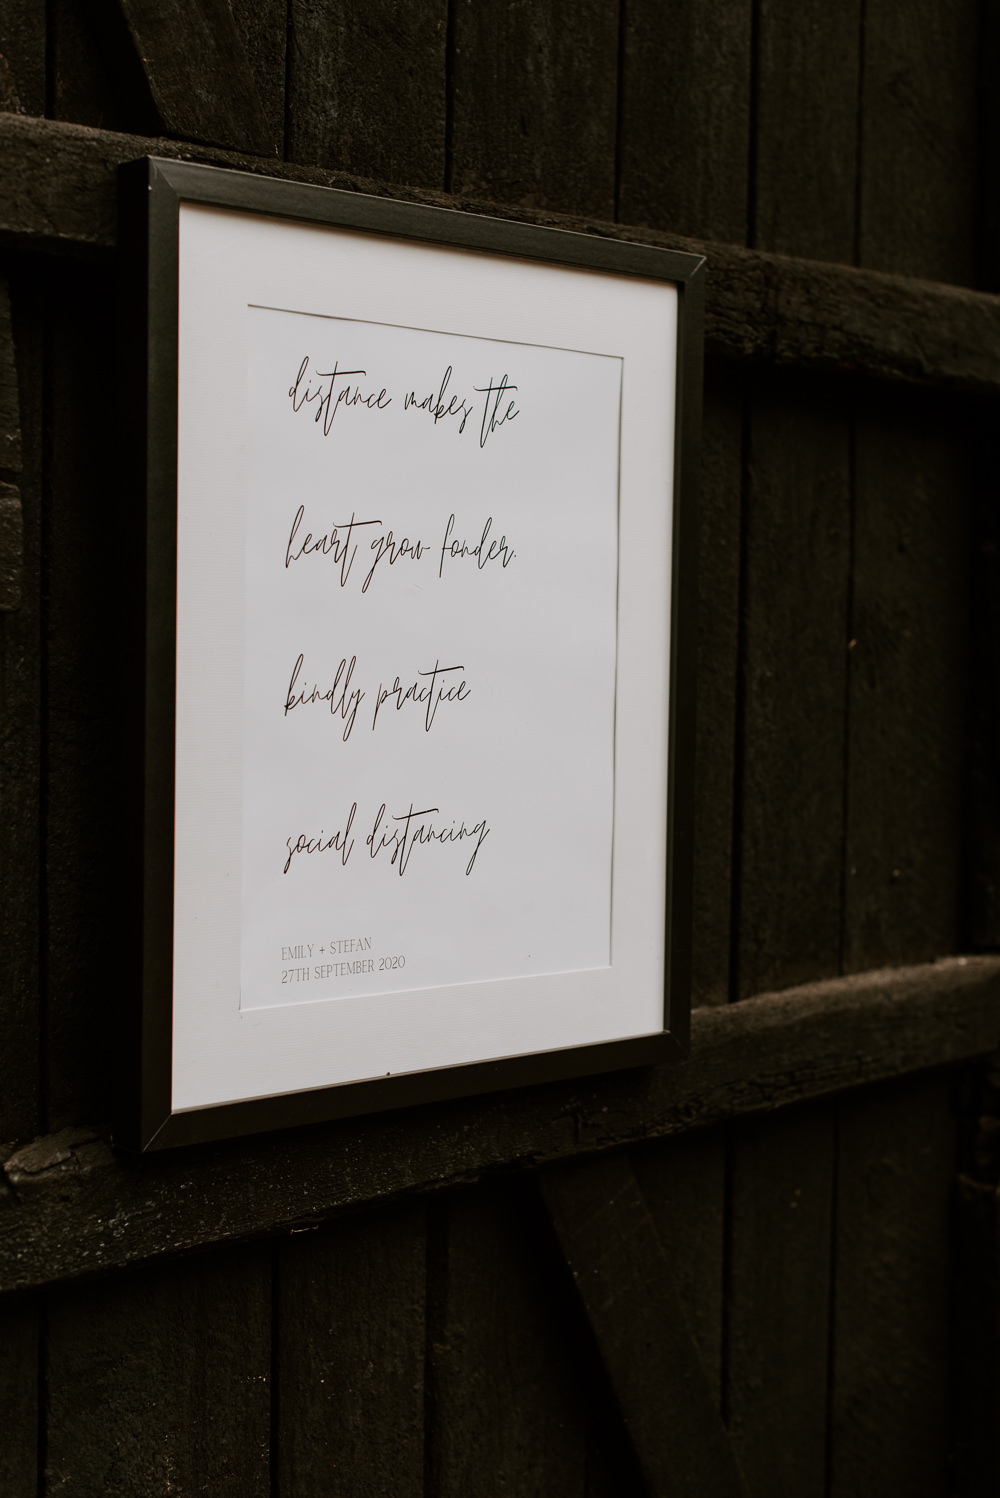 distance makes the
heart grow fonder.
kindly practice
social distancing
EMILY + STEFAN
27TH SEPTEMBER 2020